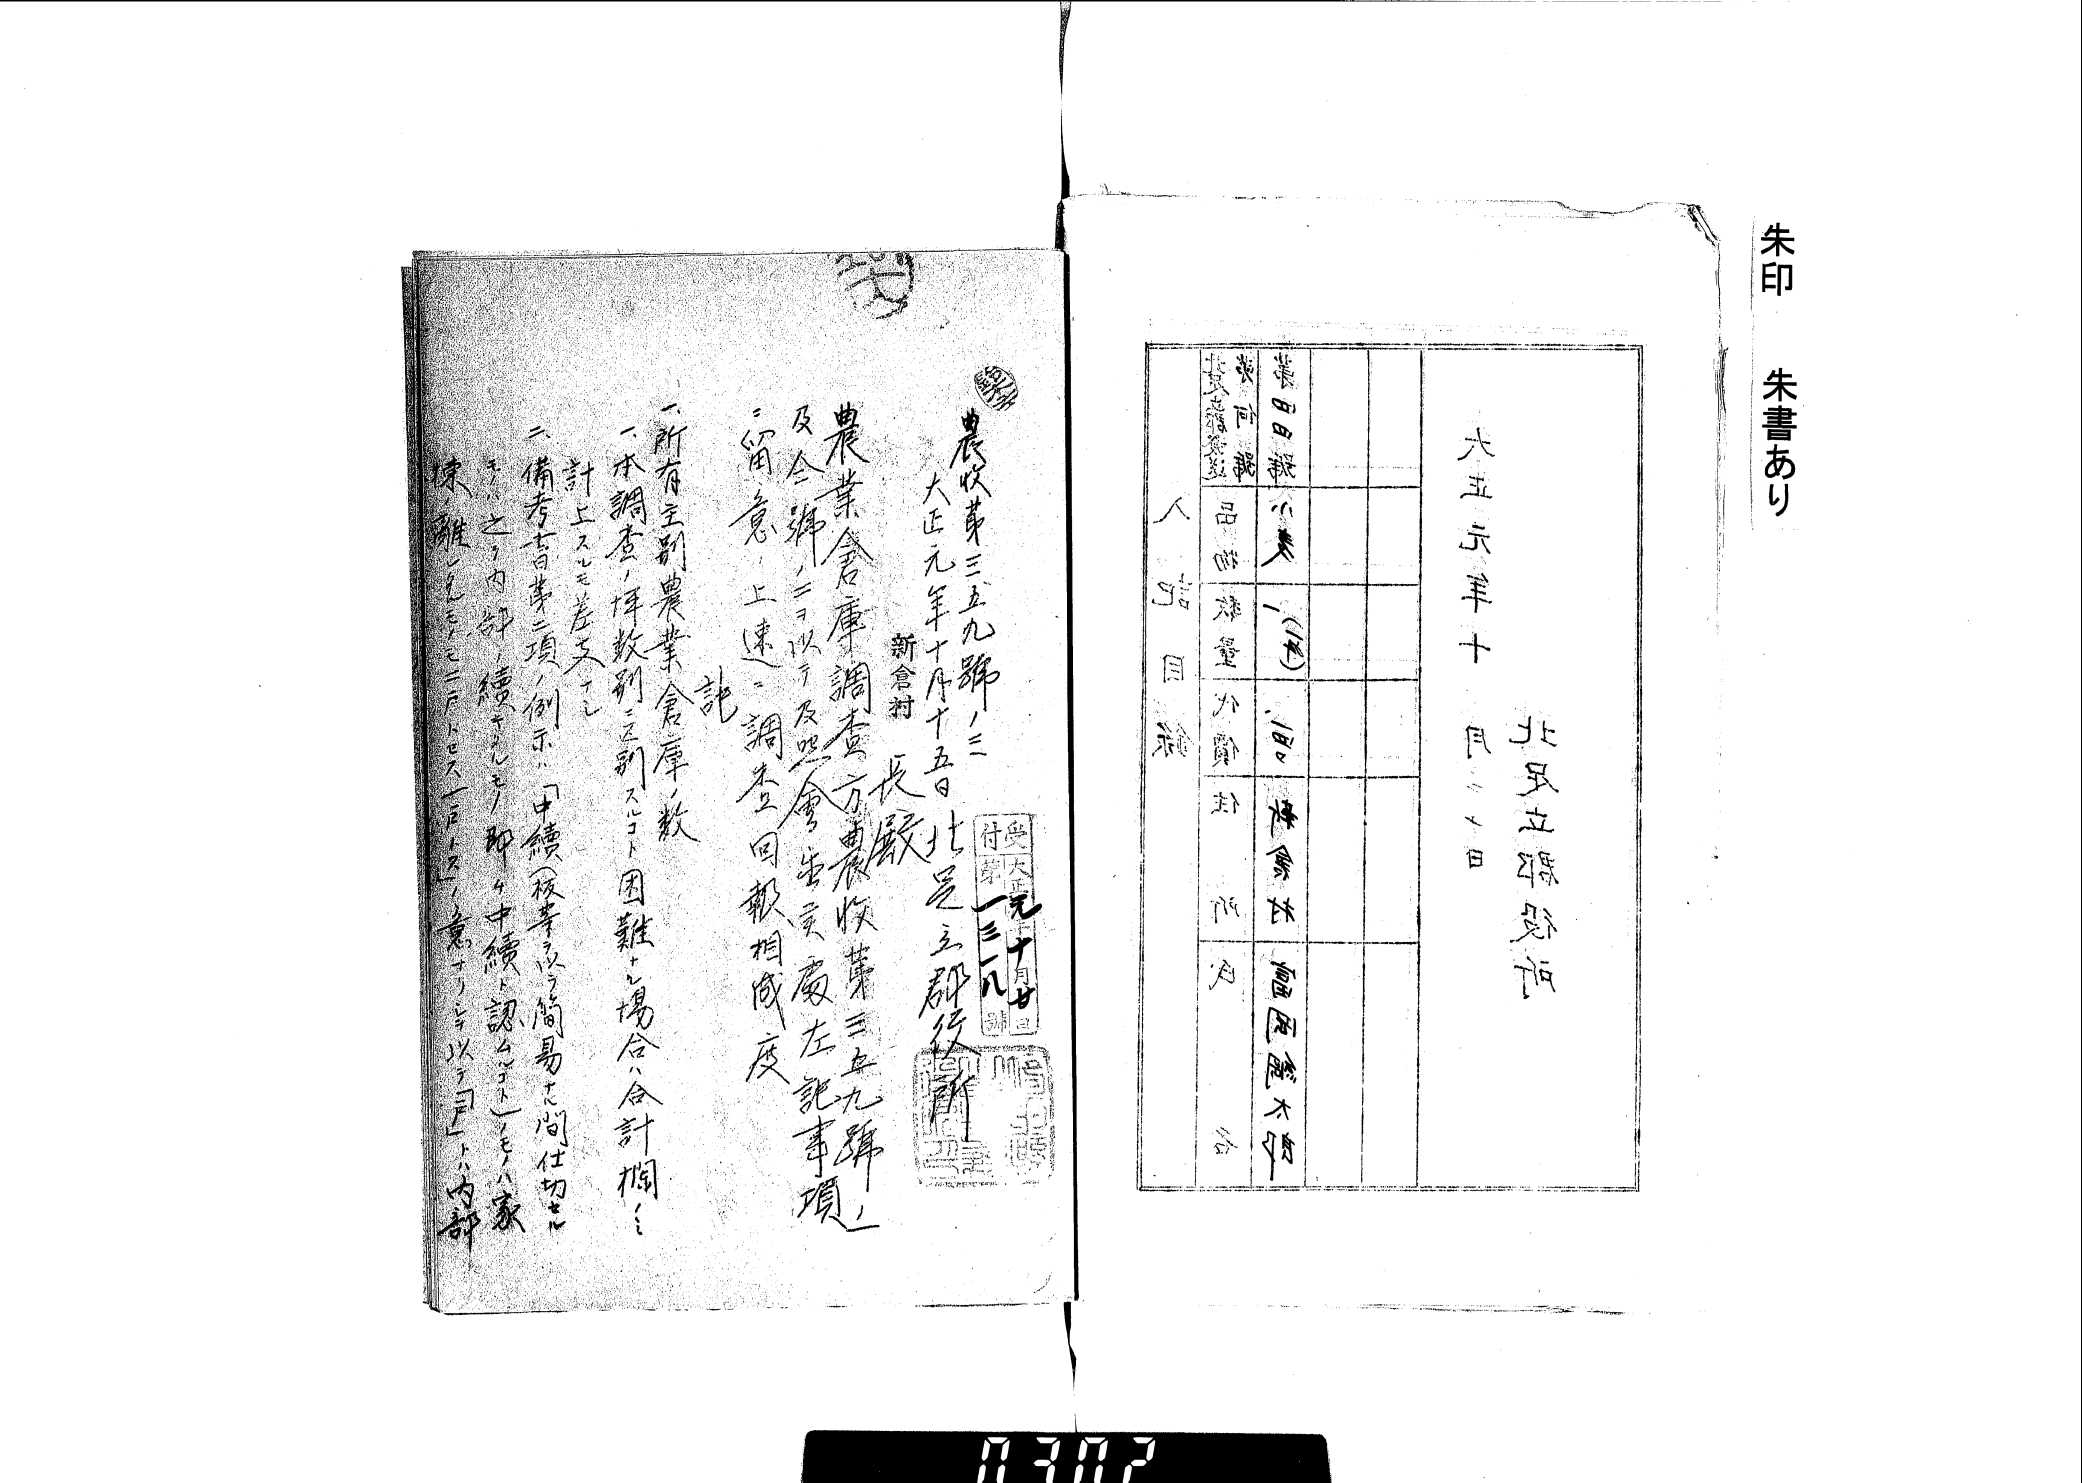 朱印 朱書あり
大正元年十月二十日
北足立郡役所
人記目録
品物
数量
代價
住所
氏名
小麦
新倉村
農收第三五九號ノ三
大正元年十月十五日 北足立郡役所
受付
大正元年十月廿日
第一三一八號
新倉村長殿
農業倉庫調査方農收第三五九號ノ一
及仝號ノ二ヲ以テ及照會置候處左記事項
ニ留意ノ上速ニ調査回報相成度
記
一、所有主別農業倉庫ノ数
一、本調査ノ坪数別ニ区別スルコト困難ナル場合ハ合計欄ノミ
計上スルモ差支ナシ
二、備考書第二項ノ例示ハ「中續(板等ヲ以テ簡易ナル間仕切セル
モノハ之ヲ内部ノ續キタルモノ即チ中續ト認ムルコト)ノモノハ家
棟離レタルモノモ一戸トセス
0302